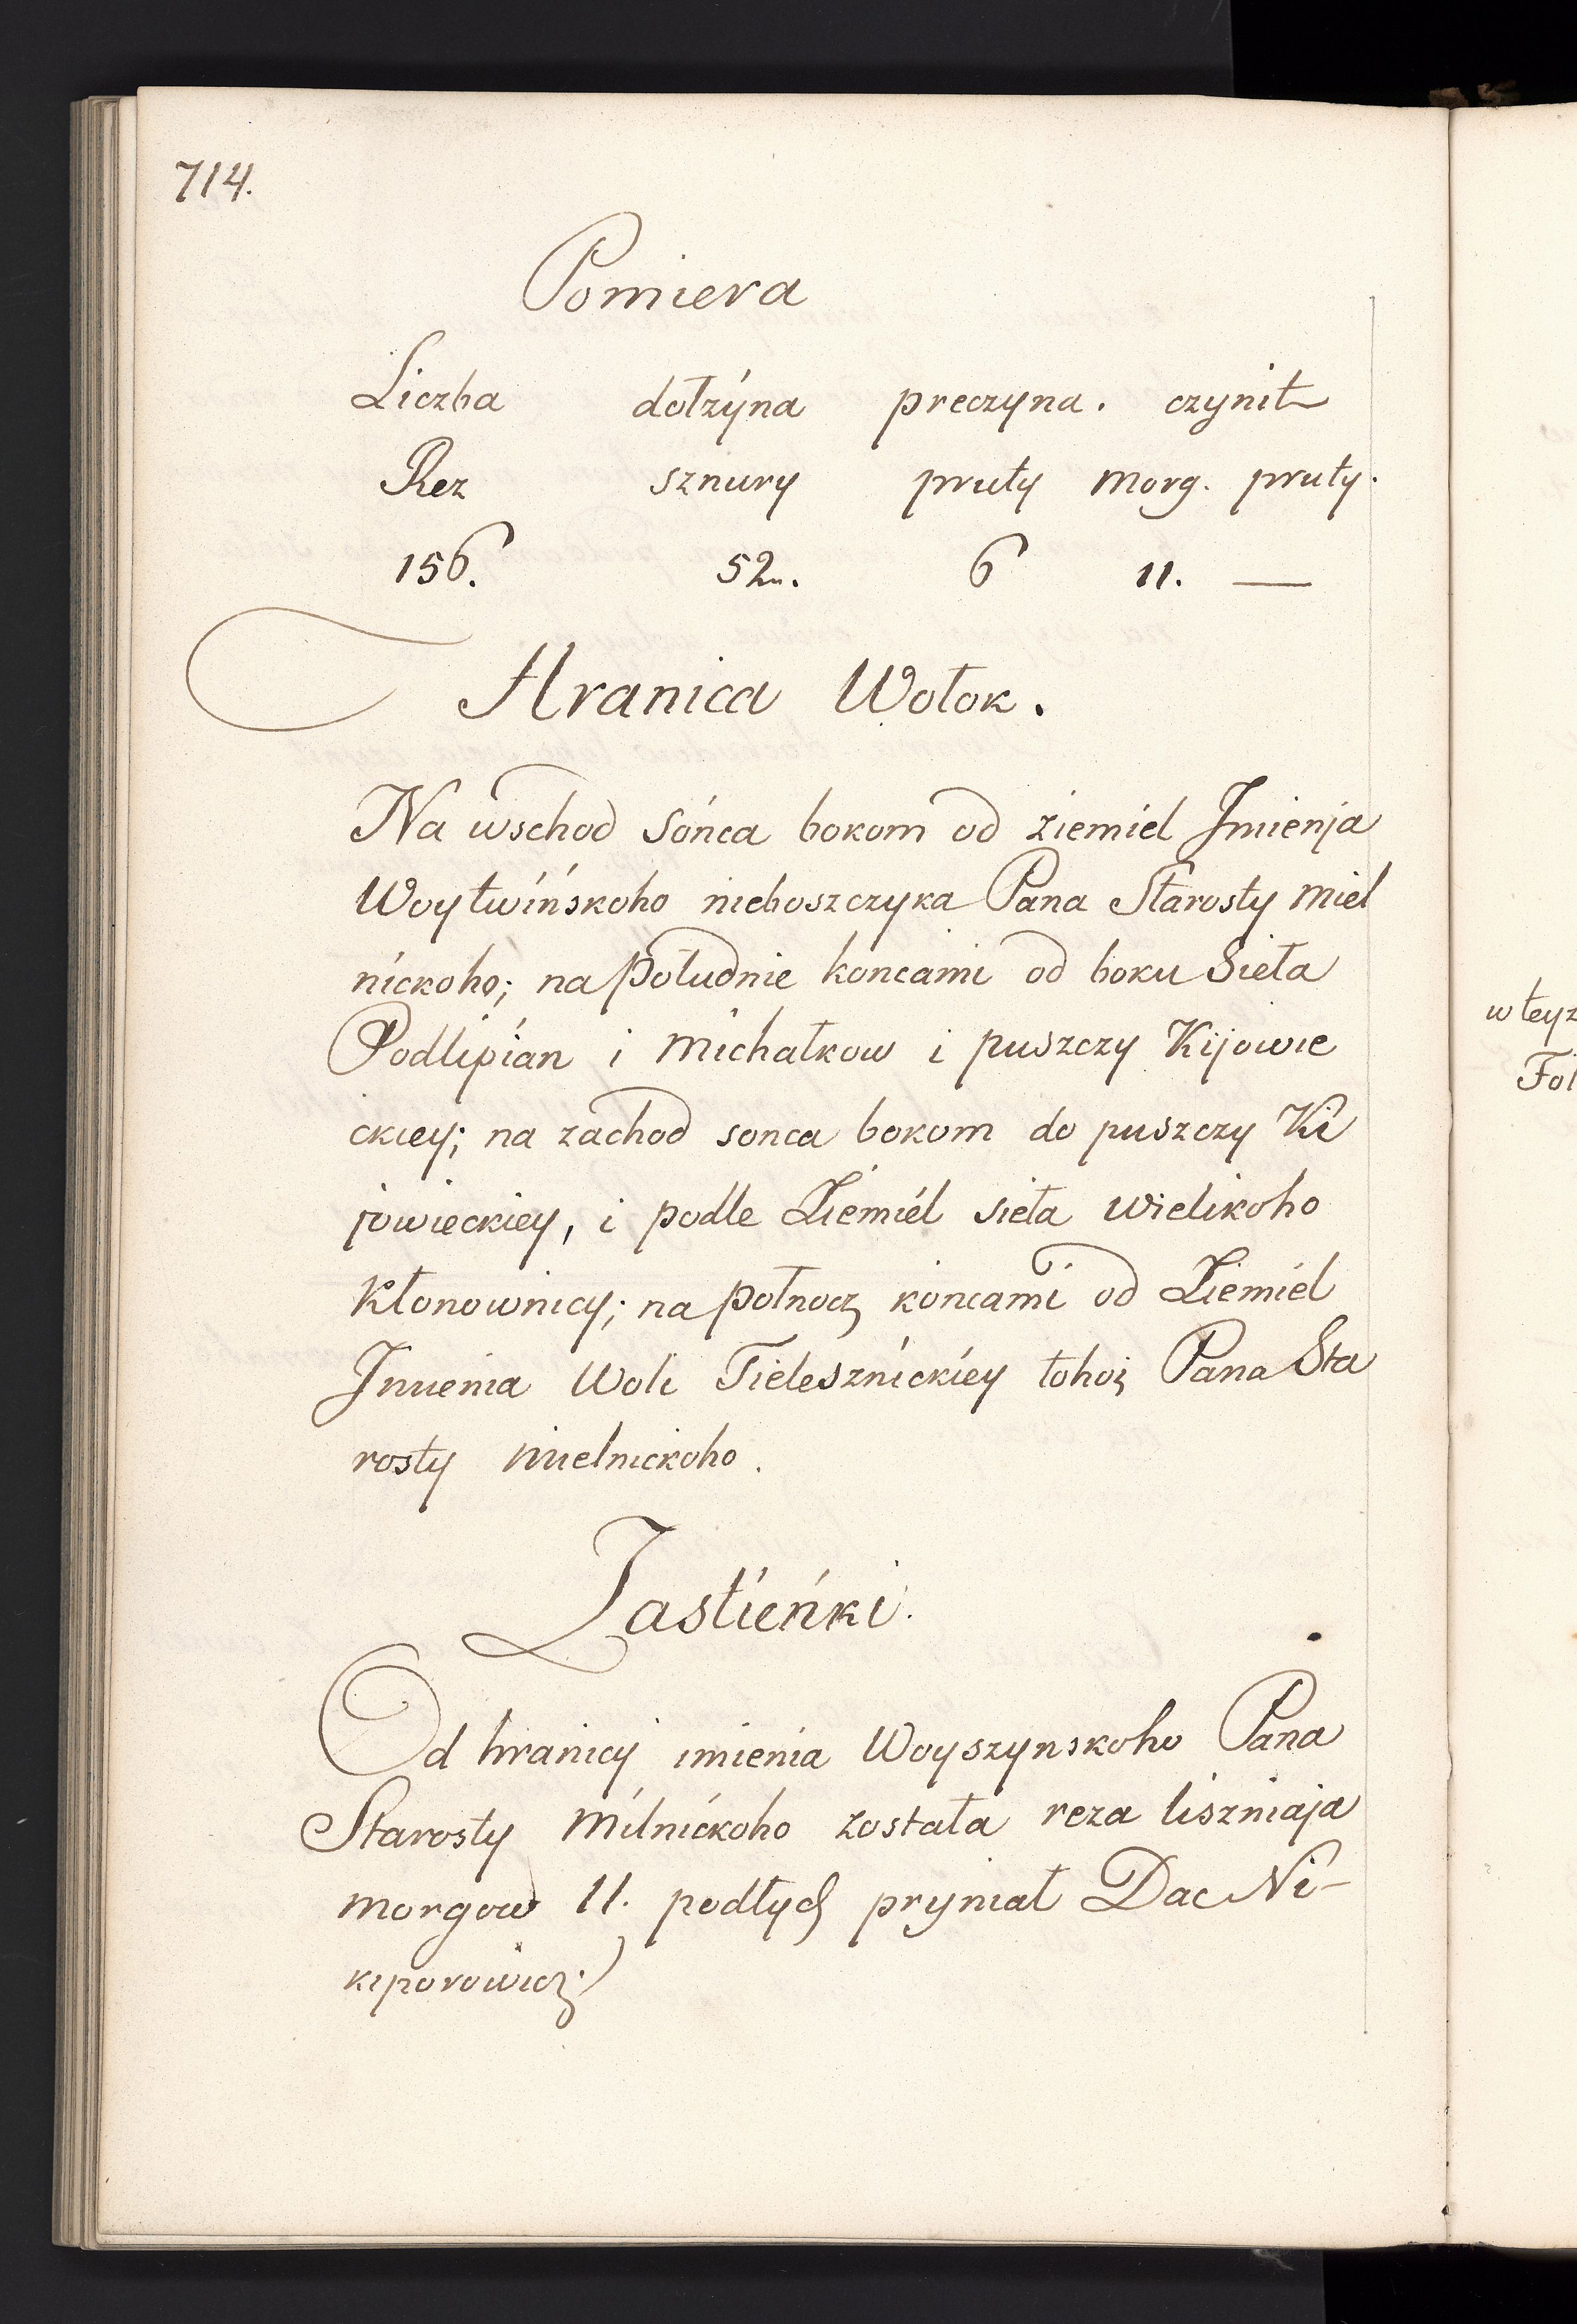 714.
Pomiera
Liczba dołzyna preczyna. czynit
Rez sznury pruty Morg. pruty.
156. 52. 6 11. —
Hranica Wołok.
Na wschod sońca bokom od ziemiel Jmienja
Woytwińskoho nieboszczyka Pana Starosty Miel
nickoho; na południe koncami od boku Sieła
Podlipian i Michałkow i puszczy Kijowie
ckiey; na zachod sonca bokom do puszczy Ki
jowieckiey, i podle Ziemiel sieła Wielikoho
Kłonownicy; na połnocz koncami od Ziemiel
Jmienia Woli Tielesznickiey tohoż Pana Sta
rosty Mielnickoho.
Zastieńki.
Od hranicy imienia Woyszynskoho Pana
Starosty Milnickoho została reza liszniaja
morgow 11. podłych pryniał Dac Ni-
kiporowicz.
w teyz
Fol